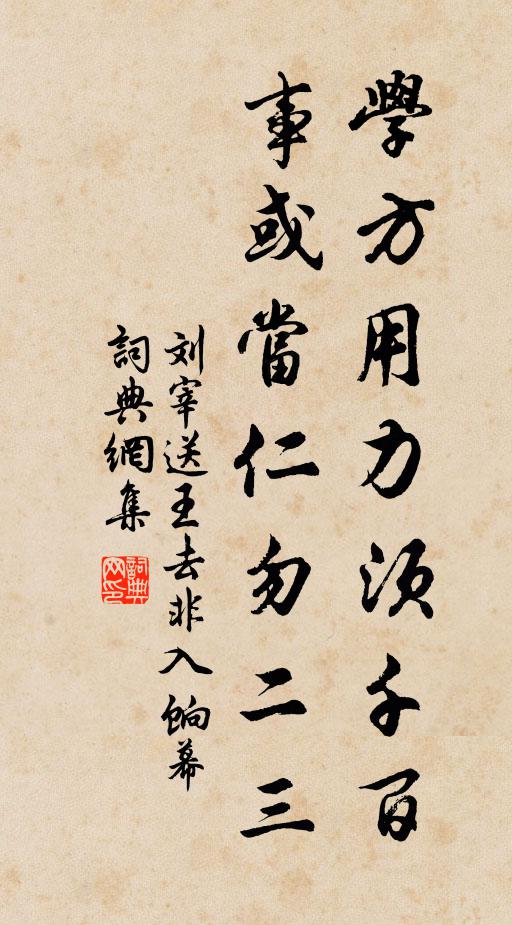 學方用力須千百
事或當仁勿二三
刘宰送王去非入餉幕
詞典網集
詞典网印